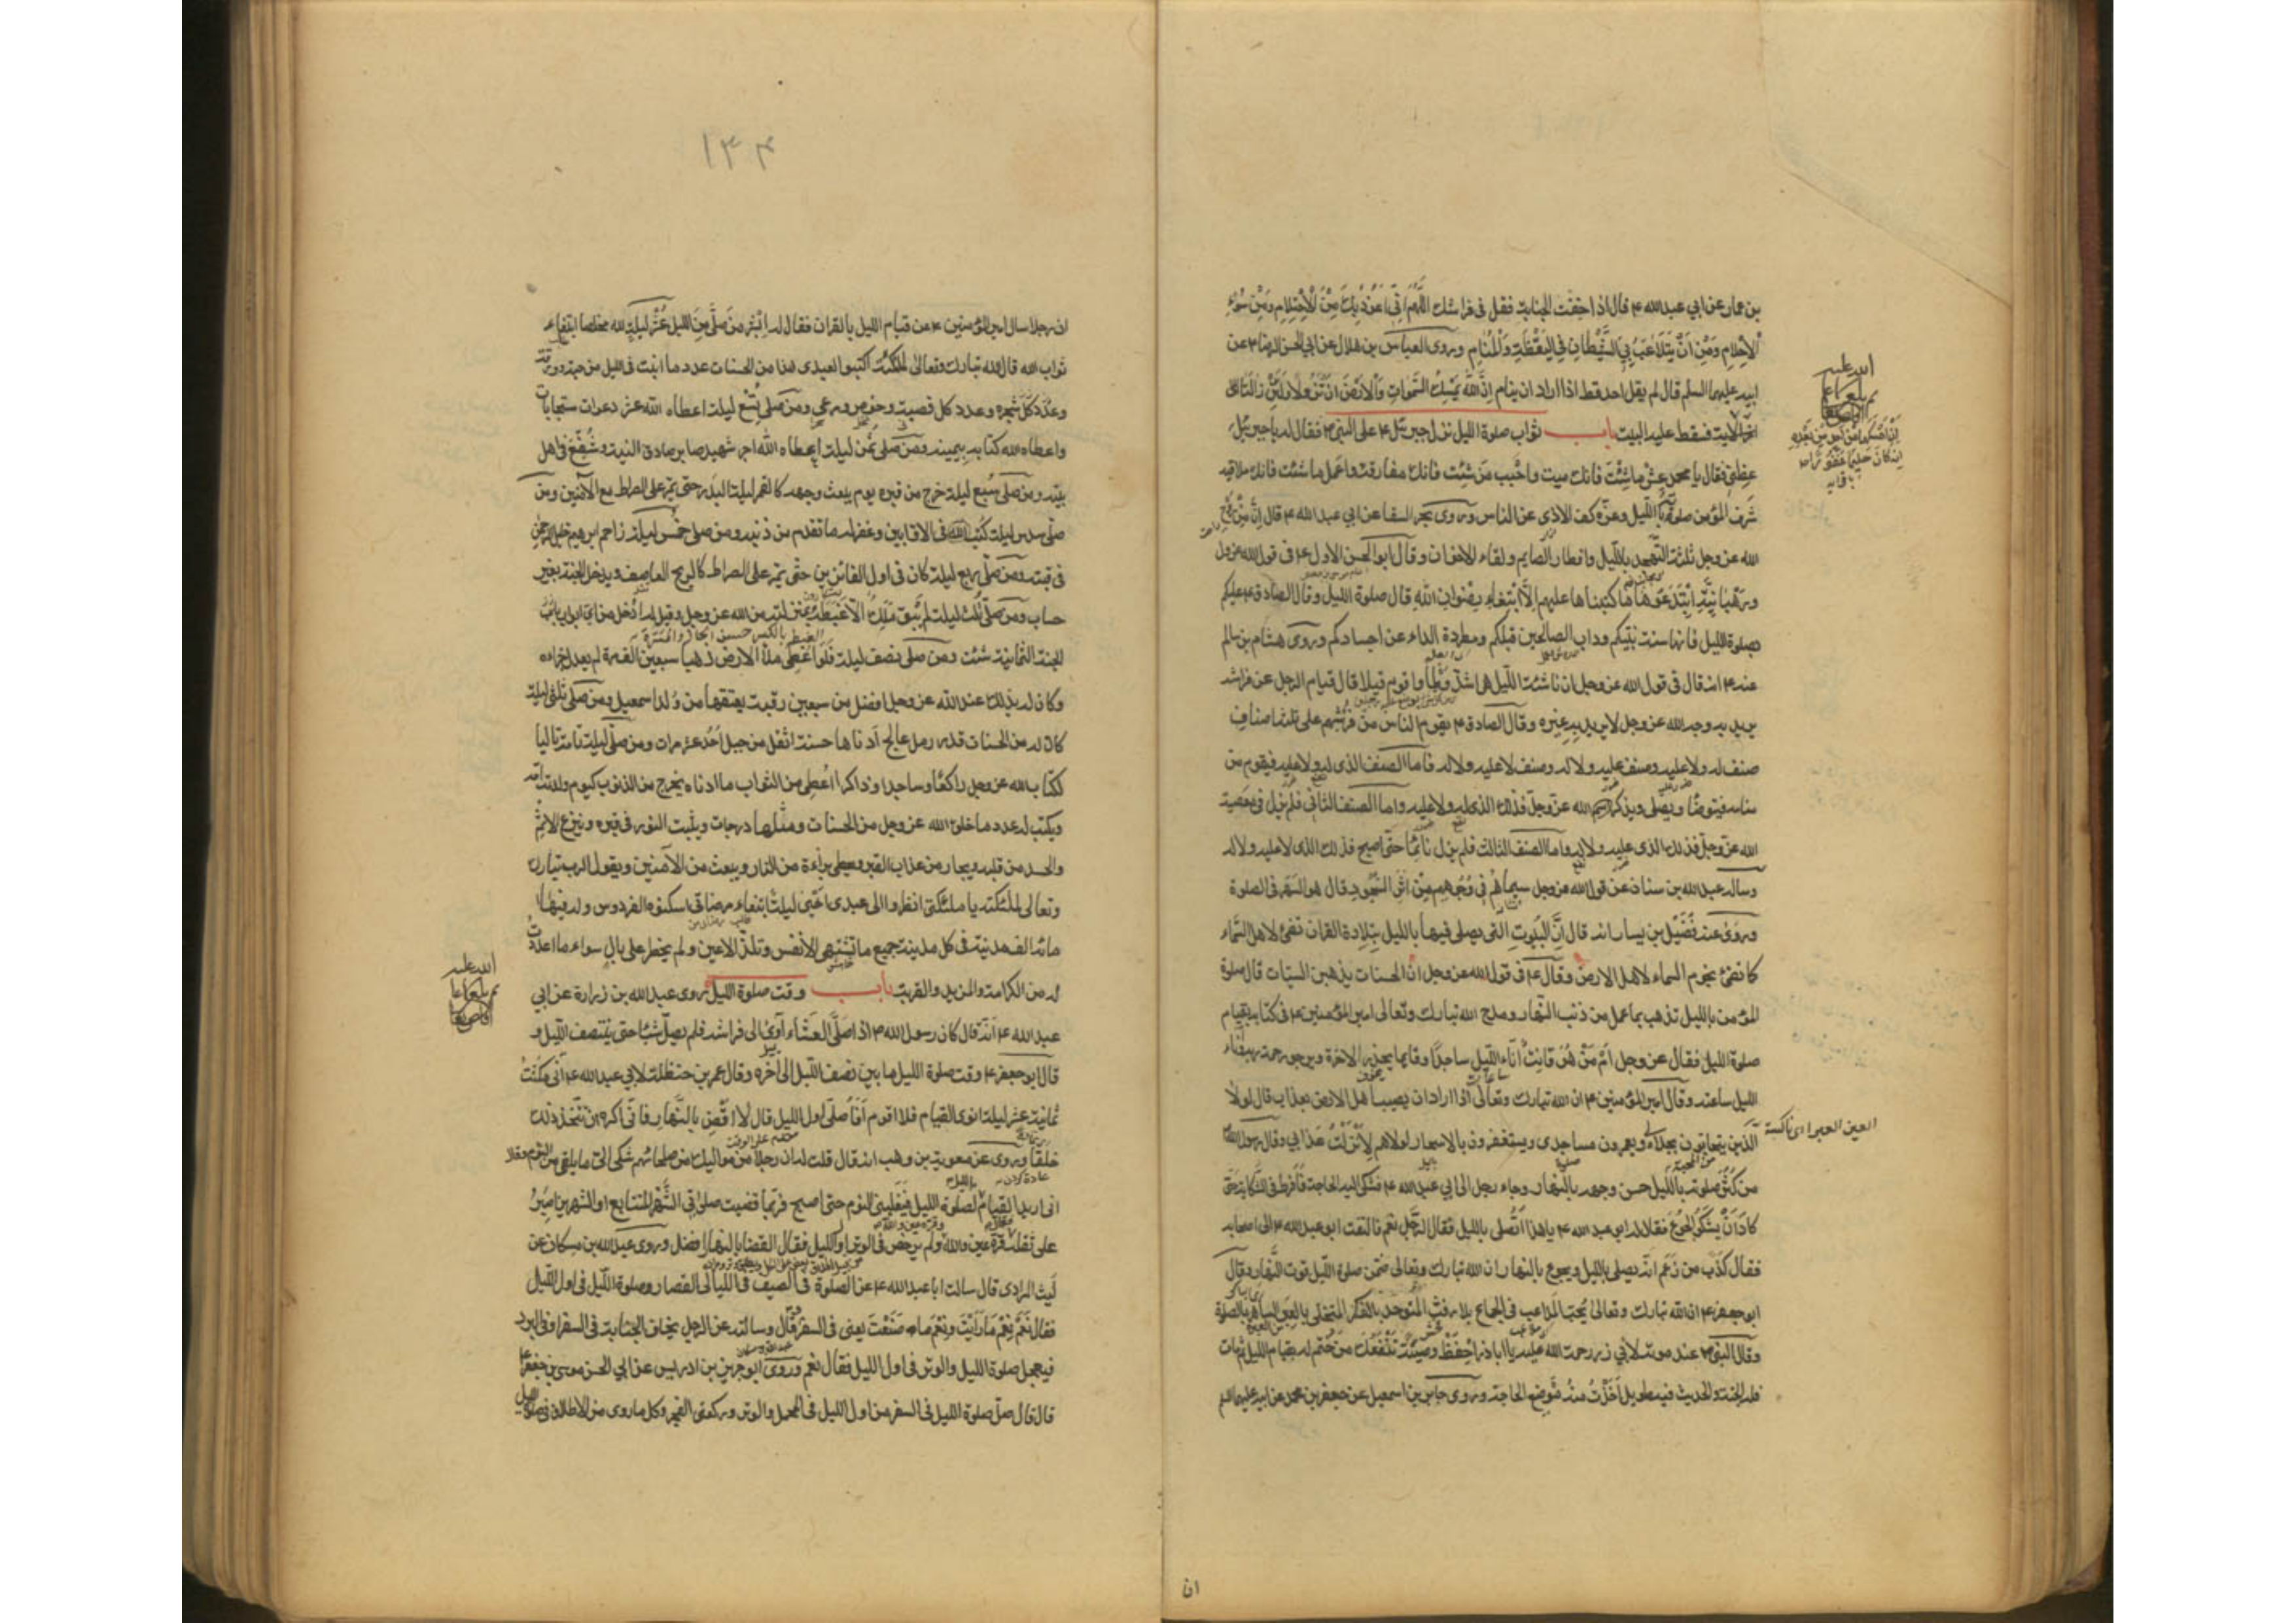 بن عمار عن ابي عبد الله ع قال اذا خفت الجنابة فقل في فراشك اللَّهُمَّ اِنِّي اَعُوذُ بِكَ مِنَ الْاِحْتِلامِ وَمِنْ سُوءِ
الْاَحْلامِ وَمِنْ اَنْ يَتَلاعَبَ بِيَ الشَّيْطانُ فِي الْيَقْظَةِ وَالْمَنامِ وروى العباس بن هلال عن ابي الحسن الرضا ع عن
ابيه عليهما السلم قال لم يقل احد قط اذا اراد ان ينام اِنَّ اللهَ يُمْسِكُ السَّمواتِ وَالْاَرْضَ اَنْ تَزُولا وَلَئِنْ زالَتا الى
اخر الاية فسقط عليه البيت باب ثواب صلوة الليل نزل جبرئيل ع على النبي ص فقال له يا جبرئيل
عظني فقال يا محمد عش ما شئت فانك ميت واحبب من شئت فانك مفارقه واعمل ما شئت فانك ملاقيه
شرف المؤمن صلوته بالليل وعزه كف الاذى عن الناس وروى بحر السقا عن ابي عبد الله ع قال ان من روح
الله عز وجل ثلثة التهجد بالليل وافطار الصايم ولقاء الاخوان وقال ابو الحسن الاول ع في قول الله عز وجل
ورهبانية ابتدعوها ما كتبناها عليهم الا ابتغاء رضوان الله قال صلوة الليل وقال الصادق ع عليكم
بصلوة الليل فانها سنة نبيكم وداب الصالحين قبلكم ومطردة الداء عن اجسادكم وروى هشام بن سالم
عنه ع انه قال في قول الله عز وجل ان ناشئة الليل هي اشد وطأ واقوم قيلا قال قيام الرجل عن فراشه
يريد به وجه الله عز وجل لا يريد به غيره وقال الصادق ع يقوم الناس من فرشهم على ثلثة اصناف
صنف له ولا عليه وصنف عليه ولا له وصنف لا عليه ولا له فاما الصنف الذي له ولا عليه فيقوم من
منامه فيتوضا ويصلي ويذكر الله عز وجل فذلك الذي له ولا عليه واما الصنف الثاني فلم يزل في معصية
الله عز وجل فذلك الذي عليه ولا له واما الصنف الثالث فلم يزل نائما حتى اصبح فذلك الذي لا عليه ولا له
وساله عبد الله بن سنان عن قول الله عز وجل سيماهم في وجوههم من اثر السجود قال هو السهر في الصلوة
وروى عنه فضيل بن يسار انه قال ان البيوت التي يصلى فيها بالليل بتلاوة القران تضئ لاهل السماء
كما تضئ نجوم السماء لاهل الارض وقال ع في قول الله عز وجل ان الحسنات يذهبن السيئات قال صلوة
المؤمن بالليل تذهب بما عمل من ذنب النهار ومدح الله تبارك وتعالى امير المؤمنين ع في كتابه بقيام
صلوة الليل فقال عز وجل امن هو قانت اناء الليل ساجدا وقايما يحذر الاخرة ويرجو رحمة ربه واناء
الليل ساعاته وقال امير المؤمنين ع ان الله تبارك وتعالى اذا اراد ان يصيب اهل الارض بعذاب قال لولا
الذين يتحابون بجلالي ويعمرون مساجدي ويستغفرون بالاسحار لولاهم لانزلت عذابي وقال رسول الله
من كثر صلوته بالليل حسن وجهه بالنهار وجاء رجل الى ابي عبد الله ع فشكى اليه الحاجة فافرط في الشكاية حتى
كاد ان يشكو الجوع فقال له ابو عبد الله ع يا هذا اتصلي بالليل فقال الرجل نعم فالتفت ابو عبد الله ع الى اصحابه
فقال كذب من زعم انه يصلي بالليل ويجوع بالنهار ان الله تبارك وتعالى ضمن صلوة الليل قوت النهار وقال
ابو جعفر ع ان الله تبارك وتعالى يحب المداعب في الجماع بلا رفث المتوحد بالفكر المتخلي بالعبر الساهر بالصلوة
وقال النبي ص عند موته لابي ذر رحمت الله عليه يا اباذر احفظ وصية تنفعك من ختم له بقيام الليل ثم مات
فله الجنة والحديث فيه طويل اخذت منه موضع الحاجة وروى جابر بن اسمعيل عن جعفر بن محمد عن ابيه عليهما السلم
العين العبر اي ناكسته
ان
١٣٤
ان رجلا سال امير المؤمنين ع عن قيام الليل بالقران فقال له ابشر من صلى من الليل عشر ليلة لله مخلصا ابتغاء
ثواب الله قال الله تبارك وتعالى لملئكته اكتبوا لعبدي هذا من الحسنات عدد ما انبت في الليل من حبة وورقة
وعدد كل شجرة وعدد كل قصبة وخوص ومرعي ومن صلى تسع ليلة اعطاه الله عشر دعوات مستجابات
واعطاه الله كتابه بيمينه ومن صلى ثمن ليلة اعطاه الله اجر شهيد صابر صادق النية وشفع في اهل
بيته ومن صلى سبع ليلة خرج من قبره يوم يبعث وجهه كالقمر ليلة البدر حتى يمر على الصراط مع الآمنين ومن
صلى سدس ليلة كتب في الاوابين وغفر له ما تقدم من ذنبه ومن صلى خمس ليلة زاحم ابرهيم خليل الرحمن
في قبته ومن صلى ربع ليلة كان في اول الفائزين حتى يمر على الصراط كالريح العاصف ويدخل الجنة بغير
حساب ومن صلى ثلث ليلة لم يبق ملك الا غبطه بمنزلته من الله عز وجل وقيل له ادخل من اي ابواب
الجنة الثمانية شئت ومن صلى نصف ليلة فلو اعطي ملأ الارض ذهبا سبعين الف مرة لم يعدل جزاءه
وكان له بذلك عند الله عز وجل افضل من سبعين رقبة يعتقها من ولد اسمعيل ومن صلى ثلثي ليلة
كان له من الحسنات قدر رمل عالج ادناها حسنة اثقل من جبل احد عشر مرات ومن صلى ليلة تامة تاليا
لكتاب الله عز وجل راكعا وساجدا وذاكرا اعطي من الثواب ما ادناه يخرج من الذنوب كيوم ولدته امه
ويكتب له عدد ما خلق الله عز وجل من الحسنات ومثلها درجات ويثبت النور في قبره وينزع الاثم
والحسد من قلبه ويجار من عذاب القبر ويعطى براءة من النار ويبعث من الآمنين ويقول الرب تبارك
وتعالى لملئكته يا ملئكتي انظروا الى عبدي احيى ليلة ابتغاء مرضاتي اسكنوه الفردوس وله فيها
مائة الف مدينة في كل مدينة جميع ما تشتهي الانفس وتلذ الاعين ولم يخطر على بال سوى ما اعددت
له من الكرامة والمزيد والقربة باب وقت صلوة الليل روى عبد الله بن زرارة عن ابي
عبد الله ع انه قال كان رسول الله ص اذا صلى العشاء آوى الى فراشه فلم يصل شيئا حتى ينتصف الليل و
قال ابو جعفر ع وقت صلوة الليل ما بين نصف الليل الى آخره وقال عمر بن حنظلة لابي عبد الله ع اني مكثت
ثمانية عشر ليلة انوي القيام فلا اقوم أفأصلي اول الليل قال لا اقض بالنهار فاني اكره ان تتخذ ذلك
خلقا وروى عن معوية بن وهب انه قال قلت له ان رجلا من مواليك من صلحائهم شكى الي ما يلقى من النوم وقال
اني اريد القيام لصلوة الليل فيغلبني النوم حتى اصبح فربما قضيت صلوتي الشهر المتتابع او الشهرين اصبر
على ثقله قال قرة عين والله ولم يرخص في الوتر اول الليل فقال القضا بالنهار افضل وروى عبد الله بن مسكان عن
ليث المرادي قال سالت ابا عبد الله ع عن الصلوة في الصيف في الليالي القصار وصلوة الليل في اول الليل
فقال نعم نعم ما رايت ونعم ما صنعت يعني في السفر قال وسالته عن الرجل يخاف الجنابة في السفر او في البرد
فيعجل صلوة الليل والوتر في اول الليل فقال نعم وروى ابو جرير بن ادريس عن ابي الحسن موسى بن جعفر ع
قال قال صل صلوة الليل في السفر من اول الليل في المحمل والوتر وركعتي الفجر وكل ما روى من الاطلاق في صلوة الليل